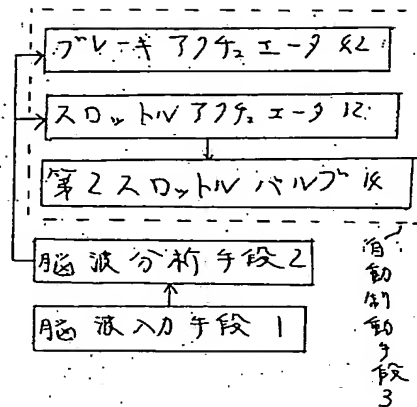 ブレーキアクチュエータ42
スロットルアクチュエータ12
第2スロットルバルブ14
脳波分析手段2
脳波入力手段1
自動制動手段3